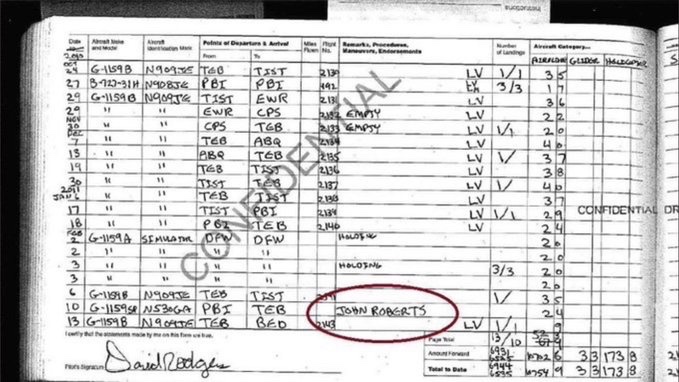 Date
Aircraft Make and Model
Aircraft Identification Mark
Points of Departure & Arrival
From To
Miles Flown
Flight No.
Remarks, Procedures, Maneuvers, Endorsements
Number of Landings
Aircraft Category
AIRPLANE GLIDER
2010
OCT
24 G-1159B N909JE TEB TIST 2130 LV 1/1 3 5
27 B-727-31H N908JE PBI PBI 3/3 1 7
29 G-1159B N909JE TIST EWR LV 3 6
29 " " EWR CPS 2132 EMPTY LV 2 2
NOV
30 " " CPS TEB 2133 EMPTY LV 1/1 2 0
DEC
7 " " TEB ABQ 2134 LV 4 0
13 " " ABQ TEB 2135 LV 1/ 3 7
19 " " TEB TIST 2136 LV 3 8
30 " " TIST TEB 2137 LV 1/ 4 0
2011
JAN 6 " " TEB TIST LV 3 7
17 " " TIST PBI LV 1/1 2 9
18 " " PBI TEB 2140 LV 2 4
FEB
2 G-1159A SIMULATOR DFW DFW HOLDING 2 0
2 " " " " 2 0
3 " " " " HOLDING 2 0
3 " " " " 3/3 2 0
6 G-1159B N909JE TEB TIST 1/ 3 5
10 N530GA PBI TEB JOHN ROBERTS 2 4
13 G-1159B N909JE TEB BED 2143 LV 1/1 9
CONFIDENTIAL
CONFIDENTIAL
I certify that the statements made by me on this form are true.
Pilot's Signature David Rodgers
Page Total
Amount Forward
Total to Date